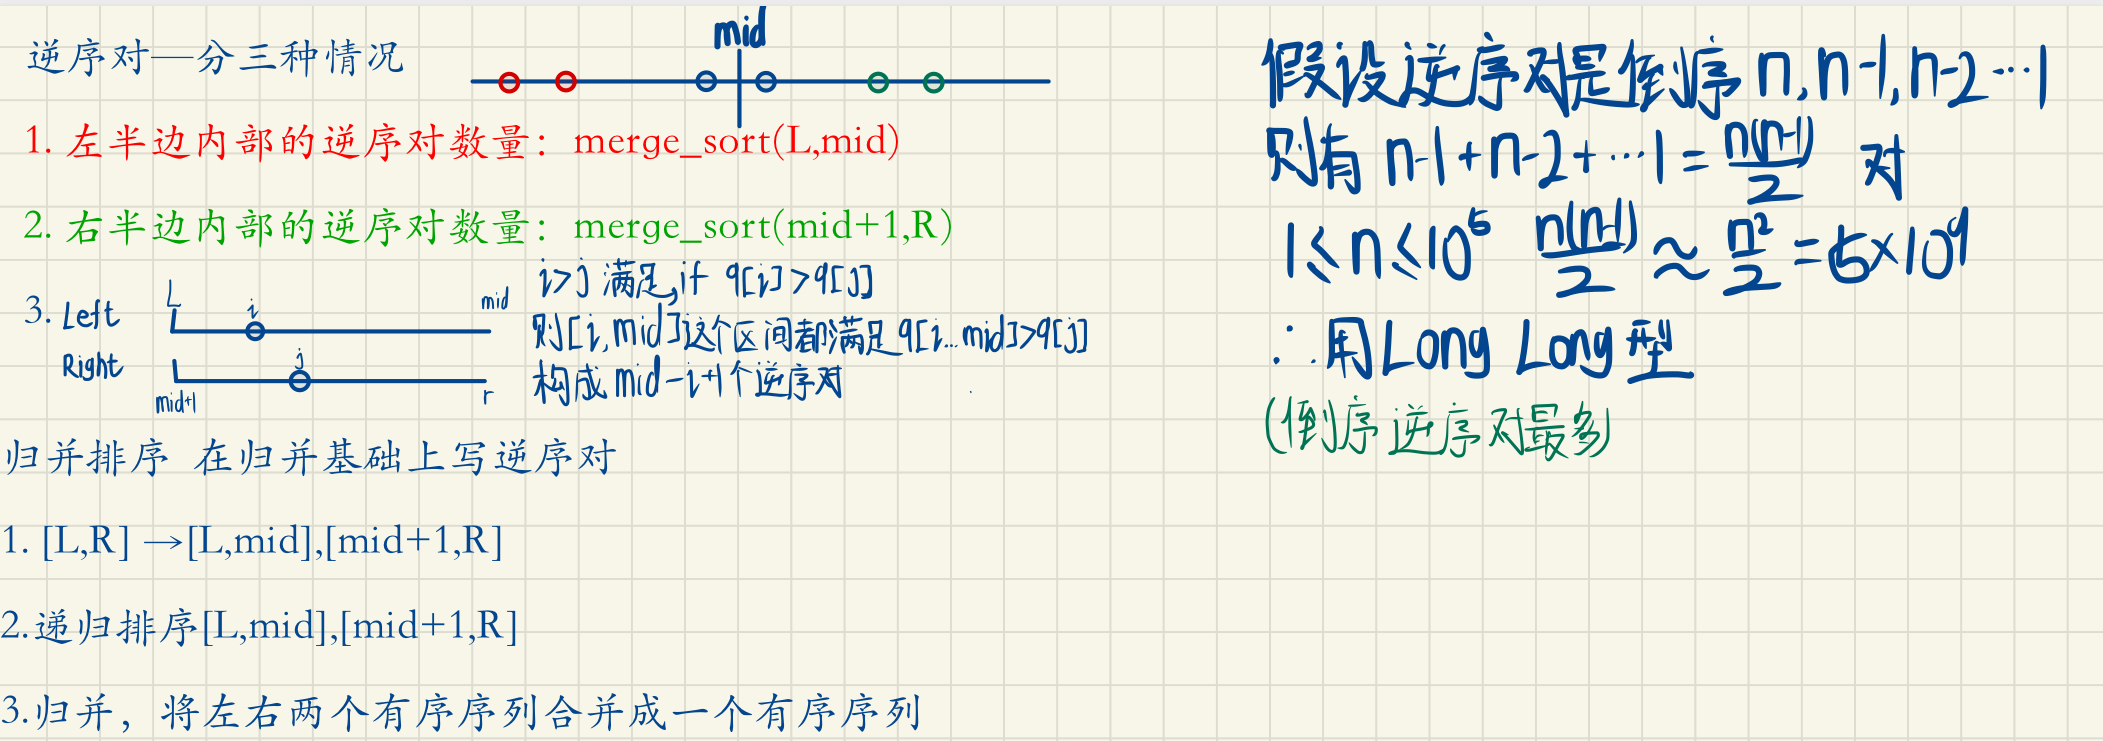 逆序对—分三种情况
mid
1. 左半边内部的逆序对数量：merge_sort(L,mid)
2. 右半边内部的逆序对数量：merge_sort(mid+1,R)
3. Left
L
i
mid
Right
j
mid+1
r
i>j 满足,if q[i]>q[j]
则[i,mid]这个区间都满足q[i...mid]>q[j]
构成mid-i+1个逆序对
归并排序 在归并基础上写逆序对
1. [L,R] →[L,mid],[mid+1,R]
2.递归排序[L,mid],[mid+1,R]
3.归并，将左右两个有序序列合并成一个有序序列
假设逆序对是倒序 n,n-1,n-2…1
则有 n-1+n-2+…1=n(n-1)/2 对
1≤n≤10⁵ n(n-1)/2≈n²/2=5×10⁹
∴用Long Long型
(倒序逆序对最多)